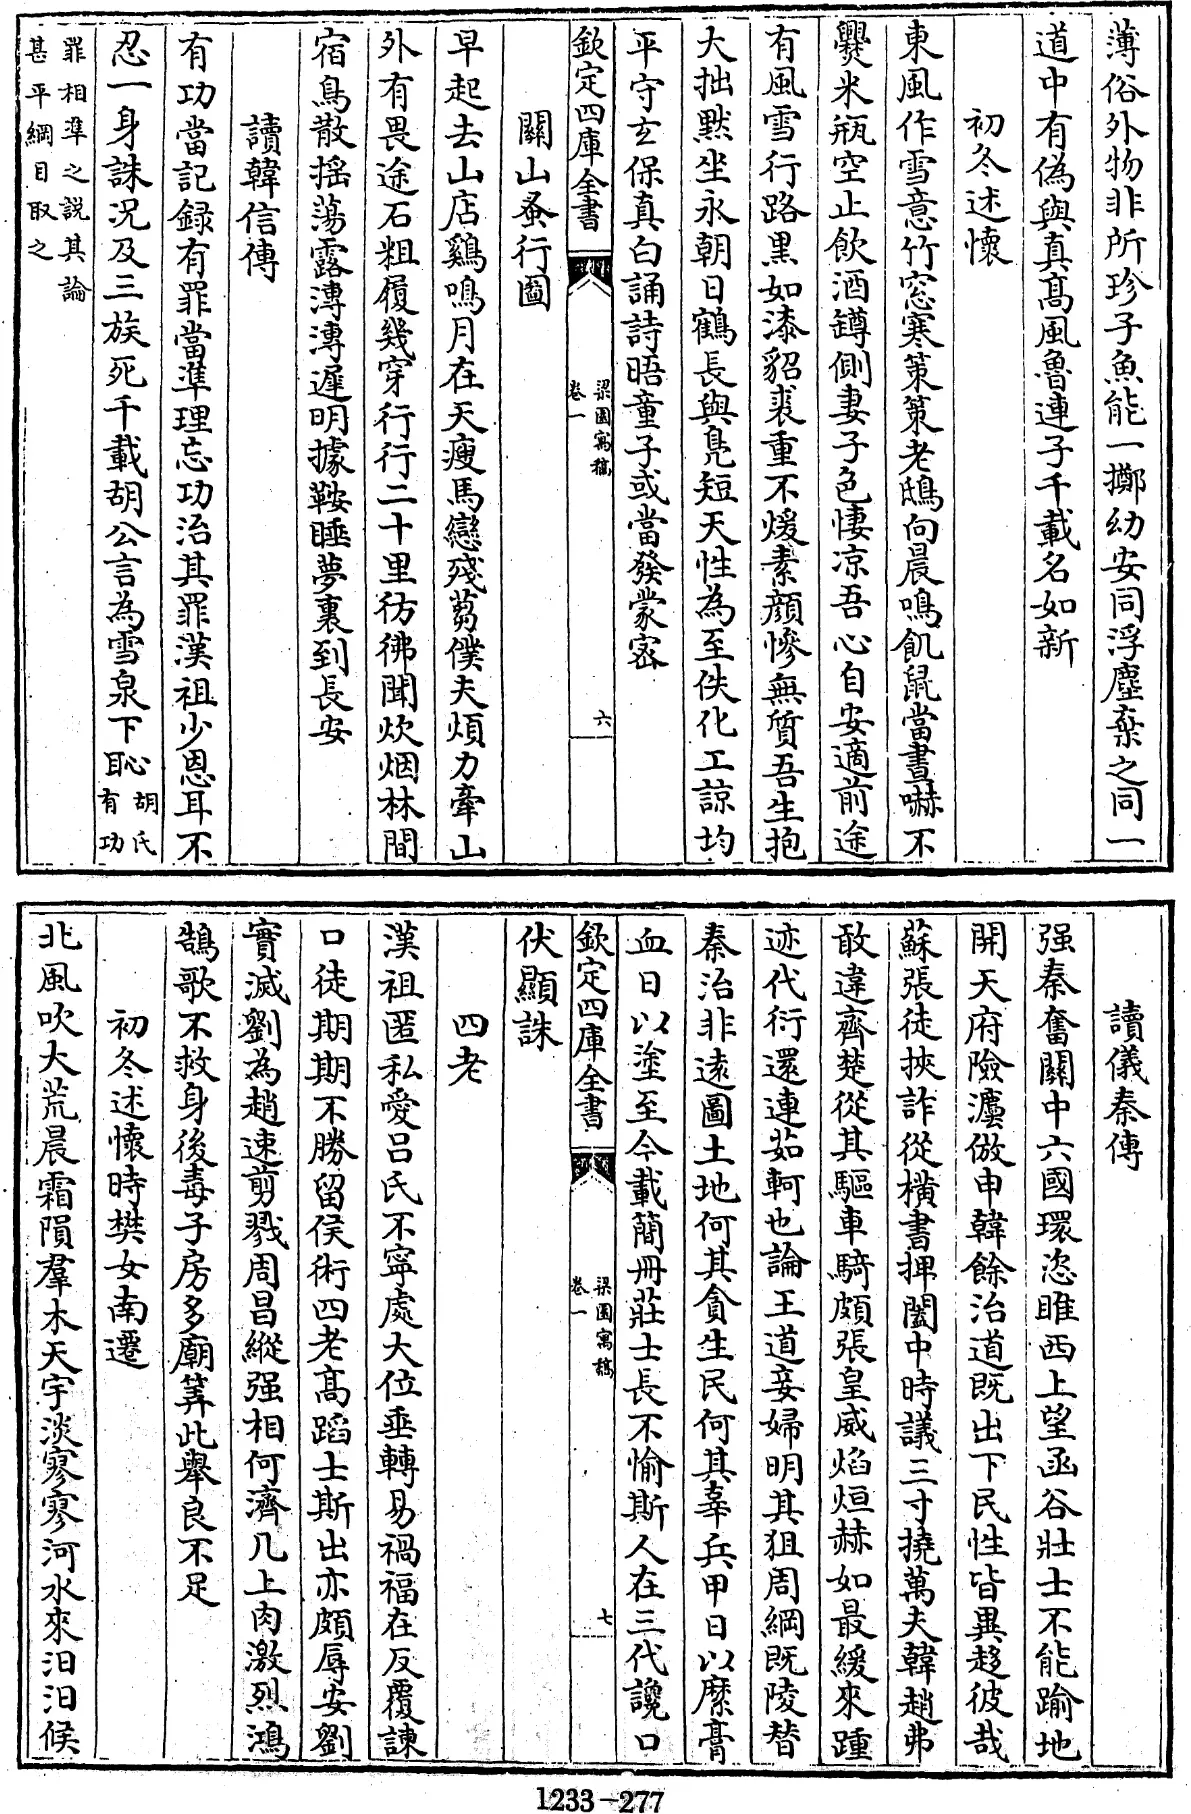 薄俗外物非所珍子魚能一擲幼安同浮塵棄之同一
道中有偽與真高風魯連子千載名如新
初冬述懷
東風作雪意竹窓寒策策老鴟向晨鳴飢鼠當晝嚇不
爨米瓶空止飲酒罇側妻子色悽凉吾心自安適前途
有風雪行路黒如漆貂裘重不煖素顔慘無質吾生抱
大拙默坐永朝日鶴長與鳧短天性為至佚化工諒均
平守玄保真白誦詩晤童子或當發蒙宻
欽定四庫全書
梁園寓稿
卷一
六
關山蚤行圖
早起去山店鷄鳴月在天瘦馬戀殘蒭僕夫煩力牽山
外有畏途石粗履幾穿行行二十里彷彿聞炊烟林間
宿鳥散摇蕩露漙漙遲明據鞍睡夢裏到長安
讀韓信傳
有功當記録有罪當準理忘功治其罪漢祖少恩耳不
忍一身誅況及三族死千載胡公言為雪泉下恥
胡氏
有功
罪相準之説其論
甚平綱目取之
讀儀秦傳
强秦奮關中六國環恣睢西上望函谷壯士不能踰地
開天府險灋倣申韓餘治道既出下民性皆異趍彼哉
蘇張徒挾詐從横書押闔中時議三寸撓萬夫韓趙弗
敢違齊楚從其驅車騎頗張皇威焰烜赫如最緩來踵
迹代衍還連茹軻也論王道妾婦明其狙周綱既陵替
秦治非逺圖土地何其貪生民何其辜兵甲日以縻膏
血日以塗至今載簡冊莊士長不愉斯人在三代讒口
欽定四庫全書
梁園寓稿
卷一
七
伏顯誅
四老
漢祖匿私愛吕氏不寧處大位垂轉易禍福在反覆諫
口徒期期不勝留侯術四老高蹈士斯出亦頗辱安劉
實滅劉為趙速剪戮周昌縱强相何濟几上肉激烈鴻
鵠歌不救身後毒子房多廟筭此舉良不足
初冬述懷時樊女南遷
北風吹大荒晨霜隕羣木天宇淡寥寥河水來汨汨候
1233-277